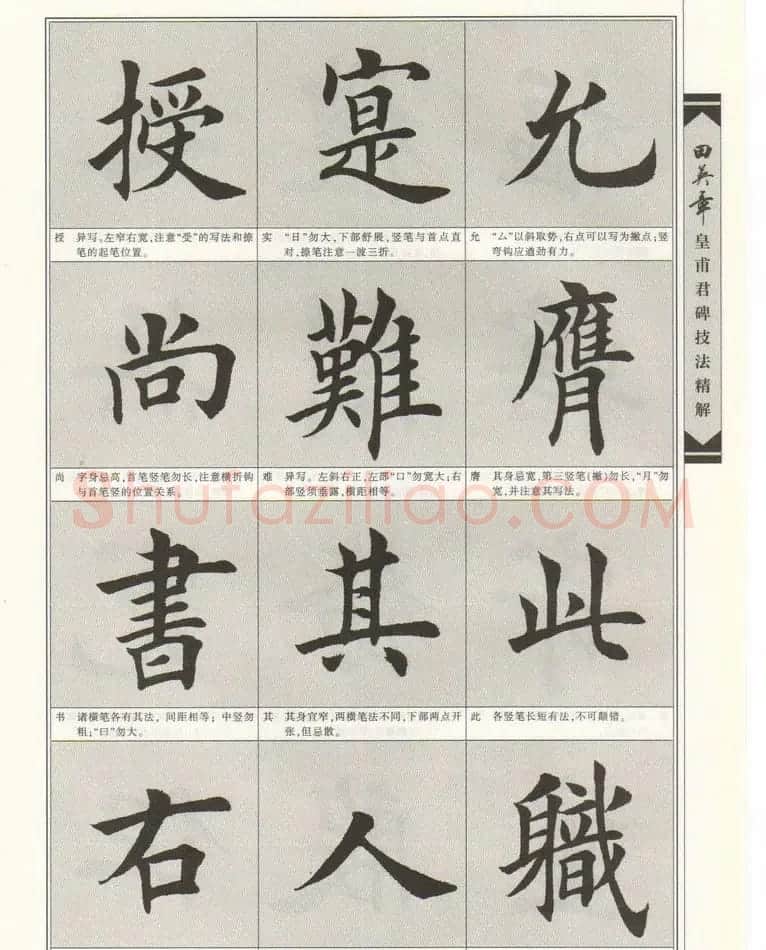 田英章皇甫君碑技法精解
允
允 “厶”以斜取势,右点可以写为撇点;竖
弯钩应遒劲有力。
膺
膺 其身忌宽,第三竖笔(撇)勿长,“月”勿
宽,并注意其写法。
此
此 各竖笔长短有法,不可颠错。
職
寔
实 “日”勿大,下部舒展,竖笔与首点直
对,捺笔注意一波三折。
難
难 异写。左斜右正,左部“口”勿宽大;右
部竖须垂露,横距相等。
其
其 其身宜窄,两横笔法不同,下部两点开
张,但忌散。
人
授
授 异写。左窄右宽,注意“受”的写法和捺
笔的起笔位置。
尚
尚 字身忌高,首笔竖笔勿长,注意横折钩
与首笔竖的位置关系。
書
书 诸横笔各有其法,间距相等;中竖勿
粗;“曰”勿大。
右
Shufaziliao.COM